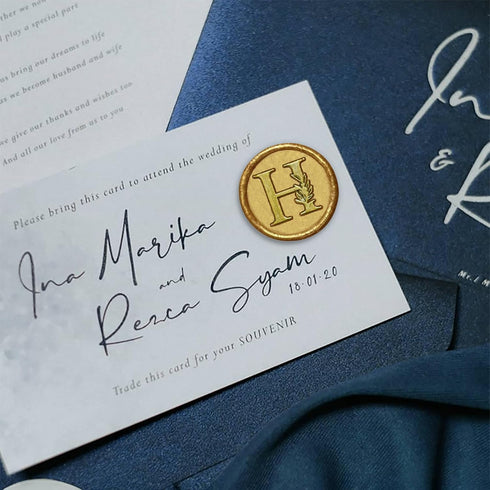 ther we now
d play a special part
us bring our dreams to life
as we become husband and wife
we give our thanks and wishes too
And all our love from us to you
Please bring this card to attend the wedding of
Ina Marika
and
Rezca Syam
18·01·20
Trade this card for your SOUVENIR
H
In
& R
Mr. / M